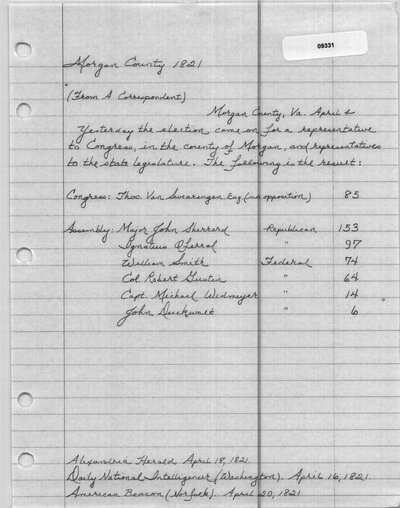 09331
Morgan County 1821
"
(From A Correspondent)
Morgan County, Va. April 4
Yesterday the election came on for a representative
to Congress, in the county of Morgan, and representatives
to the state legislature. The following is the result:
Congress: Thos. Van Swearengen Esq (no opposition) 85
Assembly: Major John Sherrard Republican 153
Ignatius O'Ferral " 97
William Smith Federal 74
Col. Robert Gustin " 64
Capt. Michael Widmeyer " 14
John Duckwalt " 6 "
Alexandria Herald April 18, 1821.
Daily National Intelligencer (Washington). April 16, 1821.
American Beacon (Norfolk). April 20, 1821